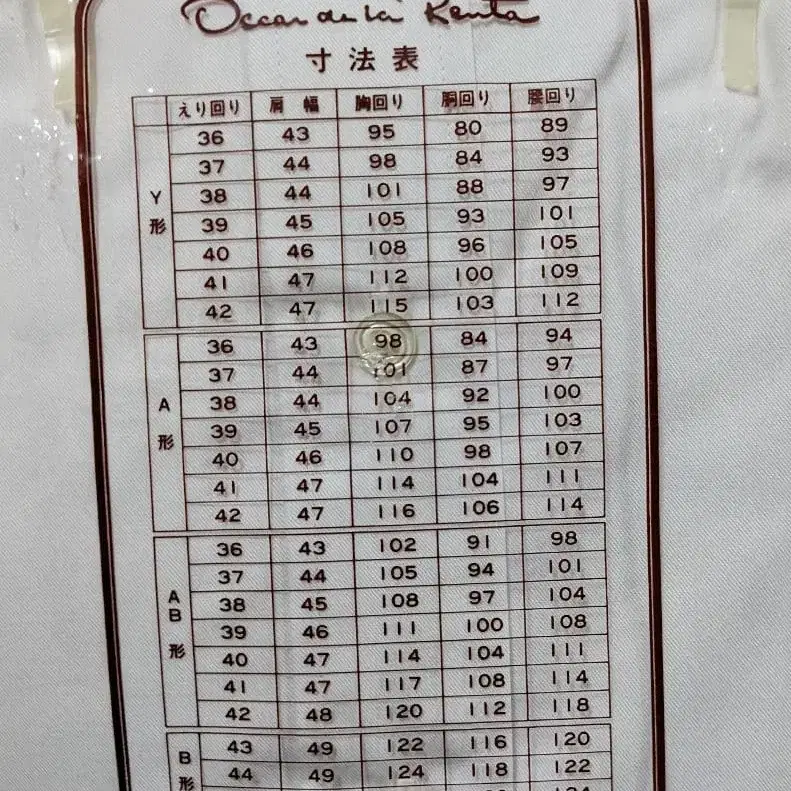 Oscar de la Renta
寸法表
えり回り 肩幅 胸回り 胴回り 腰回り
Y形
36 43 95 80 89
37 44 98 84 93
38 44 101 88 97
39 45 105 93 101
40 46 108 96 105
41 47 112 100 109
42 47 115 103 112
A形
36 43 98 84 94
37 44 101 87 97
38 44 104 92 100
39 45 107 95 103
40 46 110 98 107
41 47 114 104 111
42 47 116 106 114
AB形
36 43 102 91 98
37 44 105 94 101
38 45 108 97 104
39 46 111 100 108
40 47 114 104 111
41 47 117 108 114
42 48 120 112 118
B形
43 49 122 116 120
44 49 124 118 122